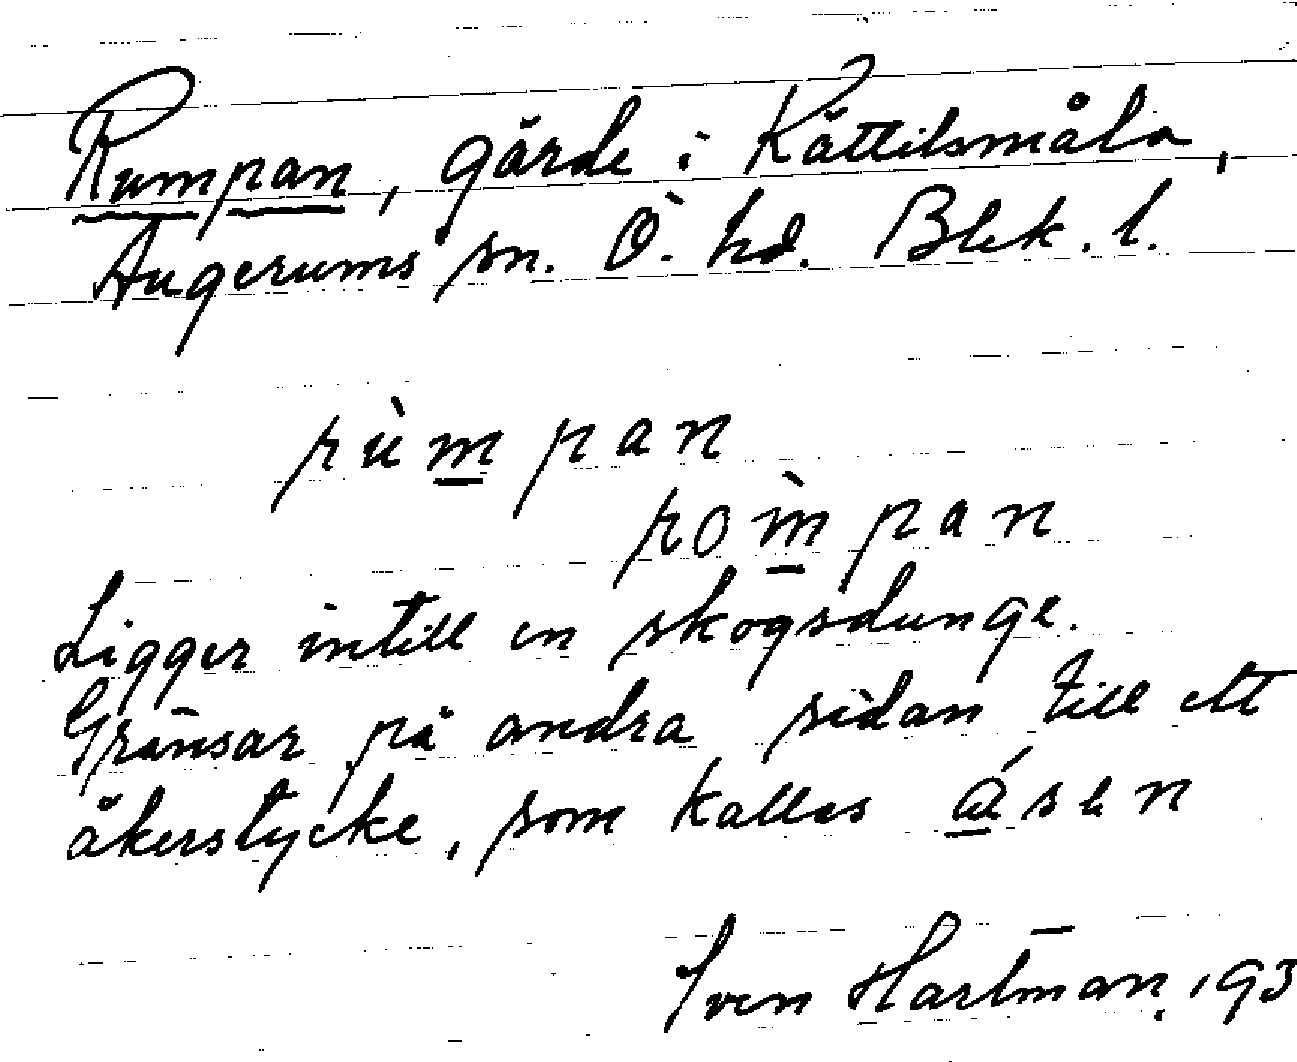 Rumpan, gärde i Kättilsmåla,
Augerums sn. Ö. hd. Blek. l.
rùmpan
ròmpan
Ligger intill en skogsdunge.
Gränsar på andra sidan till ett
åkerstycke, som kallas åsen
Sven Hartman, 193